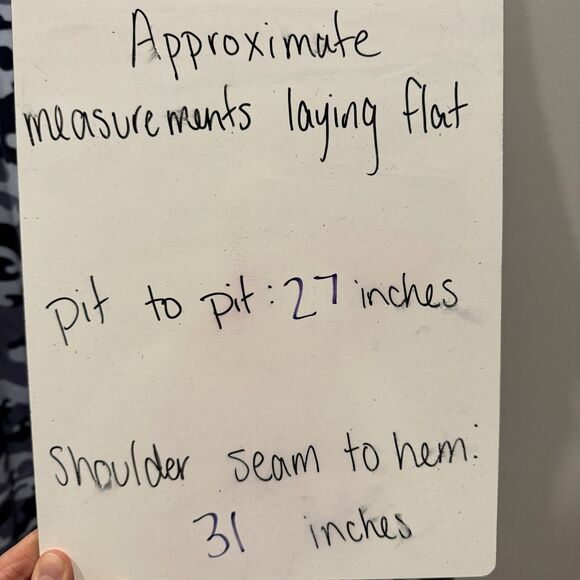 Approximate
measurements laying flat
pit to pit: 27 inches
shoulder seam to hem:
31 inches